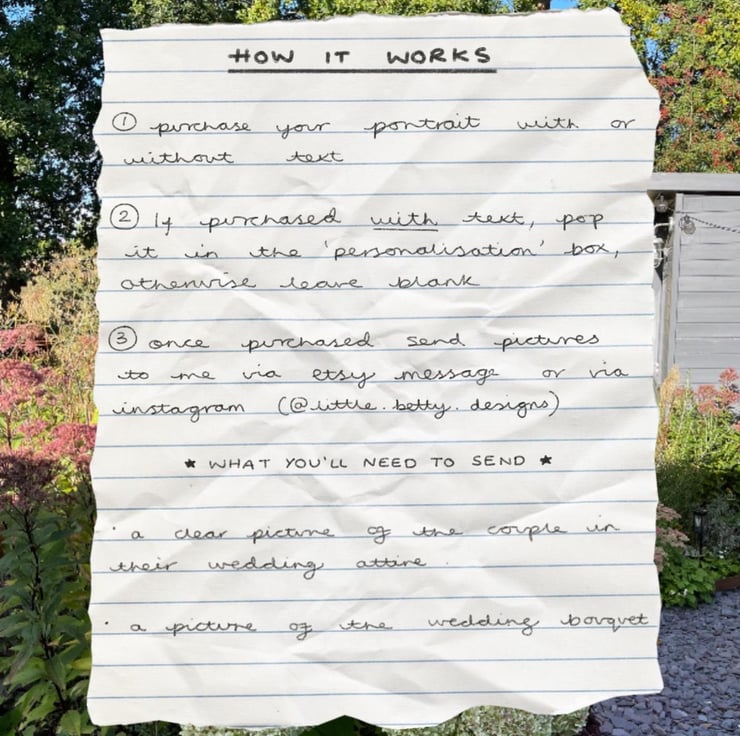 HOW IT WORKS
① purchase your portrait with or
without text
② If purchased with text, pop
it in the 'personalisation' box,
otherwise leave blank
③ once purchased send pictures
to me via etsy message or via
instagram (@little.betty.designs)
* WHAT YOU'LL NEED TO SEND *
· a clear picture of the couple in
their wedding attire.
· a picture of the wedding bouquet